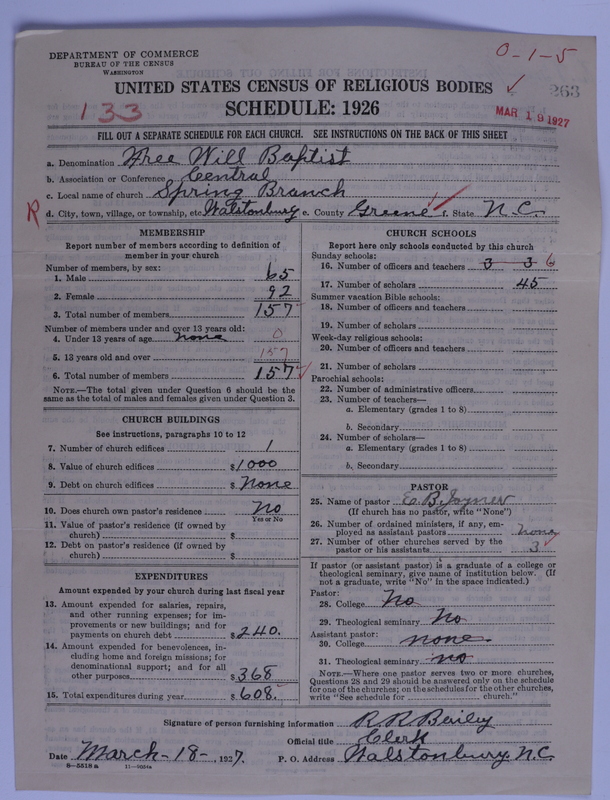 DEPARTMENT OF COMMERCE
BUREAU OF THE CENSUS
WASHINGTON
0-1-5
UNITED STATES CENSUS OF RELIGIOUS BODIES
263
133
SCHEDULE: 1926
MAR 19 1927
FILL OUT A SEPARATE SCHEDULE FOR EACH CHURCH. SEE INSTRUCTIONS ON THE BACK OF THIS SHEET
a. Denomination Free Will Baptist
b. Association or Conference Central
c. Local name of church Spring Branch
R d. City, town, village, or township, etc. Walstonburg e. County Greene f. State N.C.
MEMBERSHIP
Report number of members according to definition of
member in your church
Number of members, by sex:
1. Male 65
2. Female 92
3. Total number of members 157
Number of members under and over 13 years old:
4. Under 13 years of age none 0
5. 13 years old and over 157
6. Total number of members 157
NOTE.—The total given under Question 6 should be the
same as the total of males and females given under Question 3.
CHURCH BUILDINGS
See instructions, paragraphs 10 to 12
7. Number of church edifices 1
8. Value of church edifices $1000
9. Debt on church edifices $ None
10. Does church own pastor's residence No
Yes or No
11. Value of pastor's residence (if owned by
church) $
12. Debt on pastor's residence (if owned by
church) $
EXPENDITURES
Amount expended by your church during last fiscal year
13. Amount expended for salaries, repairs,
and other running expenses; for im-
provements or new buildings; and for
payments on church debt $240.
14. Amount expended for benevolences, in-
cluding home and foreign missions; for
denominational support; and for all
other purposes $368
15. Total expenditures during year $608.
CHURCH SCHOOLS
Report here only schools conducted by this church
Sunday schools:
16. Number of officers and teachers 3 3 6
17. Number of scholars 45
Summer vacation Bible schools:
18. Number of officers and teachers
19. Number of scholars
Week-day religious schools:
20. Number of officers and teachers
21. Number of scholars
Parochial schools:
22. Number of administrative officers
23. Number of teachers—
a. Elementary (grades 1 to 8)
b. Secondary
24. Number of scholars—
a. Elementary (grades 1 to 8)
b. Secondary
PASTOR
25. Name of pastor C. B. Joyner
(If church has no pastor, write "None")
26. Number of ordained ministers, if any, em-
ployed as assistant pastors none
27. Number of other churches served by the
pastor or his assistants 3
If pastor (or assistant pastor) is a graduate of a college or
theological seminary, give name of institution below. (If
not a graduate, write "No" in the space indicated.)
Pastor:
28. College No
29. Theological seminary No
Assistant pastor:
30. College none
31. Theological seminary no
NOTE.—Where one pastor serves two or more churches,
Questions 28 and 29 should be answered only on the schedule
for one of the churches; on the schedules for the other churches,
write "See schedule for church."
Signature of person furnishing information R. R. Bailey
Official title Clerk
Date March-18-, 1927.
P. O. Address Walstonburg N.C.
8-5518a 11-9654a